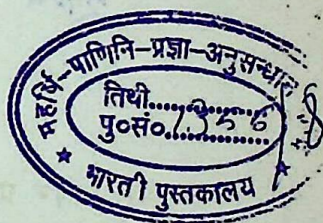 महर्षि-पाणिनि-प्रज्ञा-अनुसन्धान
तिथी..............
पु०सं०.1356
भारती पुस्तकालय